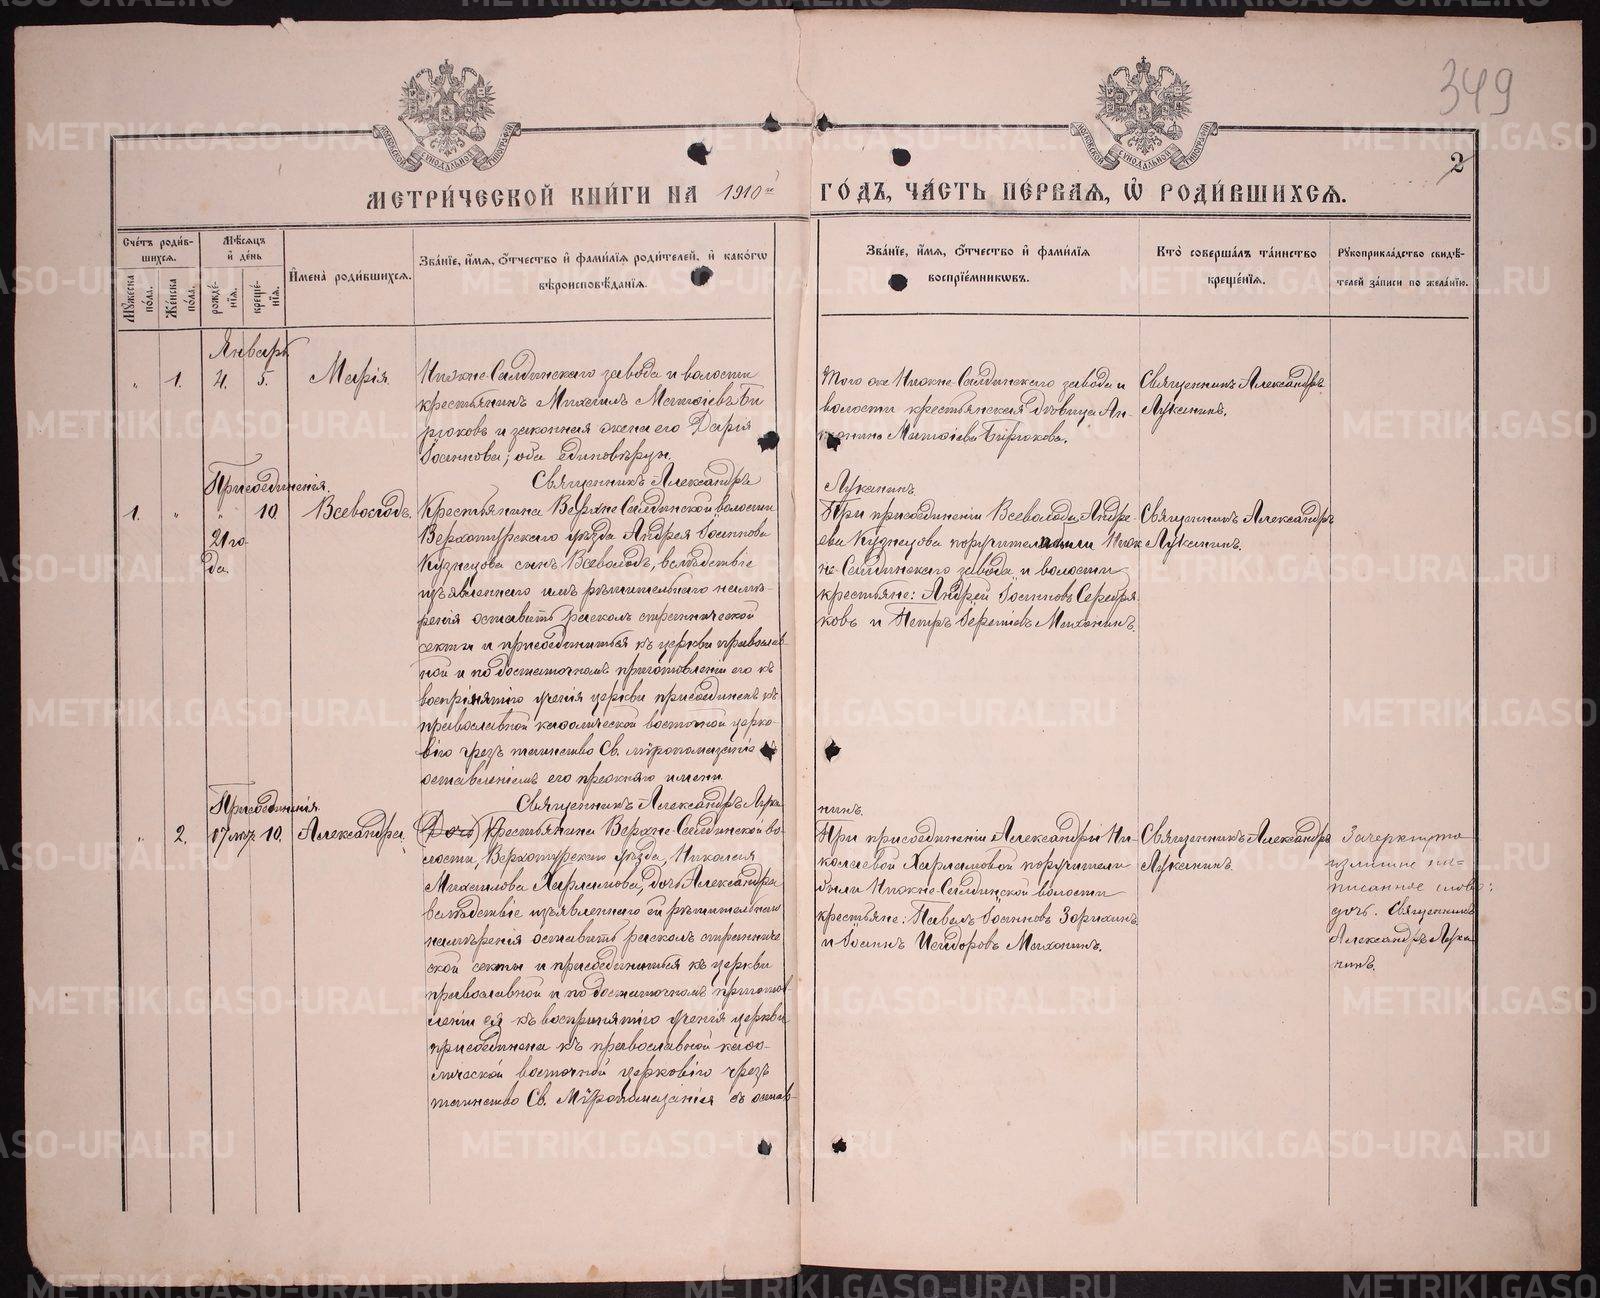 349
2
МЕТРИ́ЧЕСКОЙ КНИ́ГИ НА 1910й ГО́ДЪ, ЧА́СТЬ ПЕ́РВАЯ, Ѽ РОДИ́ВШИХСЯ.
Сче́тъ роди́в-
шихся.
Мѣ́сяцъ
и҆ де́нь
Му́жеска по́ла.
Же́нска по́ла.
рожде́-
нїя.
креще́-
нїя.
И҆мена̀ роди́вшихся.
Зва́нїе, и҆́мя, ѻ҆́тчество и҆ фами́лїя роди́телей, и҆ како́гѡ
вѣроисповѣ́данїя.
Зва́нїе, и҆́мя, ѻ҆́тчество и҆ фами́лїя
воспрїе́мникѡвъ.
Кто̀ соверша́лъ та́инство
креще́нїя.
Рꙋкоприкла́дство свидѣ́-
телей за́писи по жела́нїю.
Январь
„ 1. 4. 5. Марія.
Нижне-Салдинскаго завода и волости
крестьянинъ Михаилъ Матѳіевъ Би
рюковъ и законная жена его Дарія
Іоаннова; оба единовѣрцы.
Священникъ Александръ
Луканинъ.
Того же Нижне-Салдинскаго завода и
волости крестьянская дѣвица Ан-
тонина Матѳіева Бирюкова.
Священникъ Александръ
Луканинъ.
Присоединенія.
1. „ „ 10. Всеволодъ.
21 го
да.
Крестьянина Верхне-Салдинской волости
Верхотурскаго уѣзда Андрея Іоаннова
Кузнецова сынъ Всеволодъ, вслѣдствіе
изъявленнаго имъ рѣшительнаго намѣ-
ренія оставить расколъ страннической
секты и присоединиться къ церкви православ-
ной и по достаточномъ приготовленіи его къ
воспріятію ученія церкви присоединенъ къ
православной каѳолической восточной церко-
вію чрезъ таинство Св. Мѵропомазанія съ
оставленіемъ его прежняго имени.
Священникъ Александръ Лука
нинъ.
При присоединеніи Всеволода Андре
ева Кузнецова поручителями Ниж
не-Салдинскаго завода и волости
крестьяне: Андрей Іоанновъ Серебря
ковъ и Петръ Іереміевъ Махонинъ.
Священникъ Александръ
Луканинъ.
Присоединенія
„ 2. 17 лѣтъ 10. Александра.
(Дочь) Крестьянина Верхне-Салдинской во-
лости, Верхотурскаго уѣзда, Николая
Михаилова Харламова, дочь Александра
вслѣдствіе изъявленнаго ей рѣшительнаго
намѣренія оставить расколъ странниче
ской секты и присоединиться къ церкви
православной и по достаточномъ приготов
леніи ея къ воспринятію ученія церкви
присоединена къ православной каѳо-
лической восточной церковію чрезъ
таинство Св. Мѵропомазанія съ остав-
При присоединеніи Александры Ни
колаевой Харламовой поручители
были Нижне-Салдинской волости
крестьяне: Павелъ Іоанновъ Зорихинъ
и Іоаннъ Исидоровъ Махонинъ.
Священникъ Александръ
Луканинъ.
Зачеркнуто
излишне на-
писанное слово:
дочь. Священникъ
Александръ Лука
нинъ.